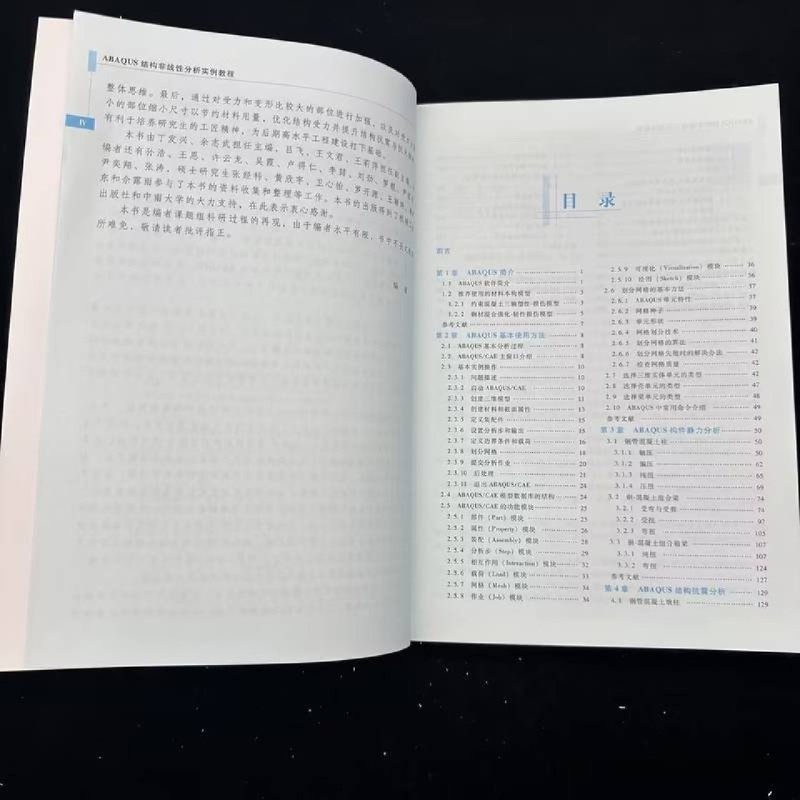 ABAQUS 结构非线性分析实例教程
IV
整体思维。最后,通过对受力和变形比较大的部位进行加强,以及对受力
小的部位缩小尺寸以节约材料用量,优化结构受力并提升结构抗震
有利于培养研究生的工匠精神,为后期高水平工程建设打下基础。
本书由丁发兴、余志武担任主编,吕飞、王文君、王莉萍担任副主编
编者还有孙浩、王恩、许云龙、吴霞、卢得仁、李喆、刘劲、罗靓、尹
尹奕翔、张涛,硕士研究生张经科、黄欣宇、卫心怡、罗开源、
东和佘露雨参与了本书的资料收集和整理等工作。本书的出版得到了机械
出版社和中南大学的大力支持,在此表示衷心感谢。
本书是编者课题组科研过程的再现,由于编者水平有限,书中不
所难免,敬请读者批评指正。
编 者
目 录
前言
第 1 章 ABAQUS 简介 1
1.1 ABAQUS 软件简介 1
1.2 推荐使用的材料本构模型 2
1.2.1 约束混凝土三轴塑性-损伤模型 2
1.2.2 钢材混合强化-韧性损伤模型 5
参考文献 7
第 2 章 ABAQUS 基本使用方法 9
2.1 ABAQUS 基本分析过程 9
2.2 ABAQUS/CAE 主窗口介绍 9
2.3 基本实例操作 10
2.3.1 问题描述 12
2.3.2 启动 ABAQUS/CAE 12
2.3.3 创建三维模型 12
2.3.4 创建材料和截面属性 13
2.3.5 定义装配件 15
2.3.6 设置分析步和输出 15
2.3.7 定义边界条件和载荷 16
2.3.8 划分网格 18
2.3.9 提交分析作业 20
2.3.10 后处理 21
2.3.11 退出 ABAQUS/CAE 24
2.4 ABAQUS/CAE 模型数据库的结构 24
2.5 ABAQUS/CAE 的功能模块 25
2.5.1 部件(Part)模块 25
2.5.2 属性(Property)模块 26
2.5.3 装配(Assembly)模块 28
2.5.4 分析步(Step)模块 29
2.5.5 相互作用(Interaction)模块 31
2.5.6 载荷(Load)模块 33
2.5.7 网格(Mesh)模块 34
2.5.8 作业(Job)模块 34
2.5.9 可视化(Visualization)模块 36
2.5.10 绘图(Sketch)模块 36
2.6 划分网格的基本方法 37
2.6.1 ABAQUS 单元特性 37
2.6.2 网格种子 38
2.6.3 单元形状 39
2.6.4 网格划分技术 40
2.6.5 划分网格的算法 41
2.6.6 划分网格失败时的解决办法 42
2.6.7 检查网格质量 42
2.7 选择三维实体单元的类型 42
2.8 选择壳单元的类型 47
2.9 选择梁单元的类型 48
2.10 ABAQUS 中常用命令介绍 49
参考文献 49
第 3 章 ABAQUS 构件静力分析 50
3.1 钢管混凝土柱 50
3.1.1 轴压 50
3.1.2 偏压 62
3.1.3 纯扭 65
3.1.4 压扭 68
3.2 钢-混凝土组合梁 74
3.2.1 受弯与受剪 74
3.2.2 受扭 97
3.2.3 弯扭 105
3.3 钢-混凝土组合箱梁 107
3.3.1 纯扭 107
3.3.2 弯扭 124
参考文献 127
第 4 章 ABAQUS 结构抗震分析 129
4.1 钢管混凝土墩柱 129